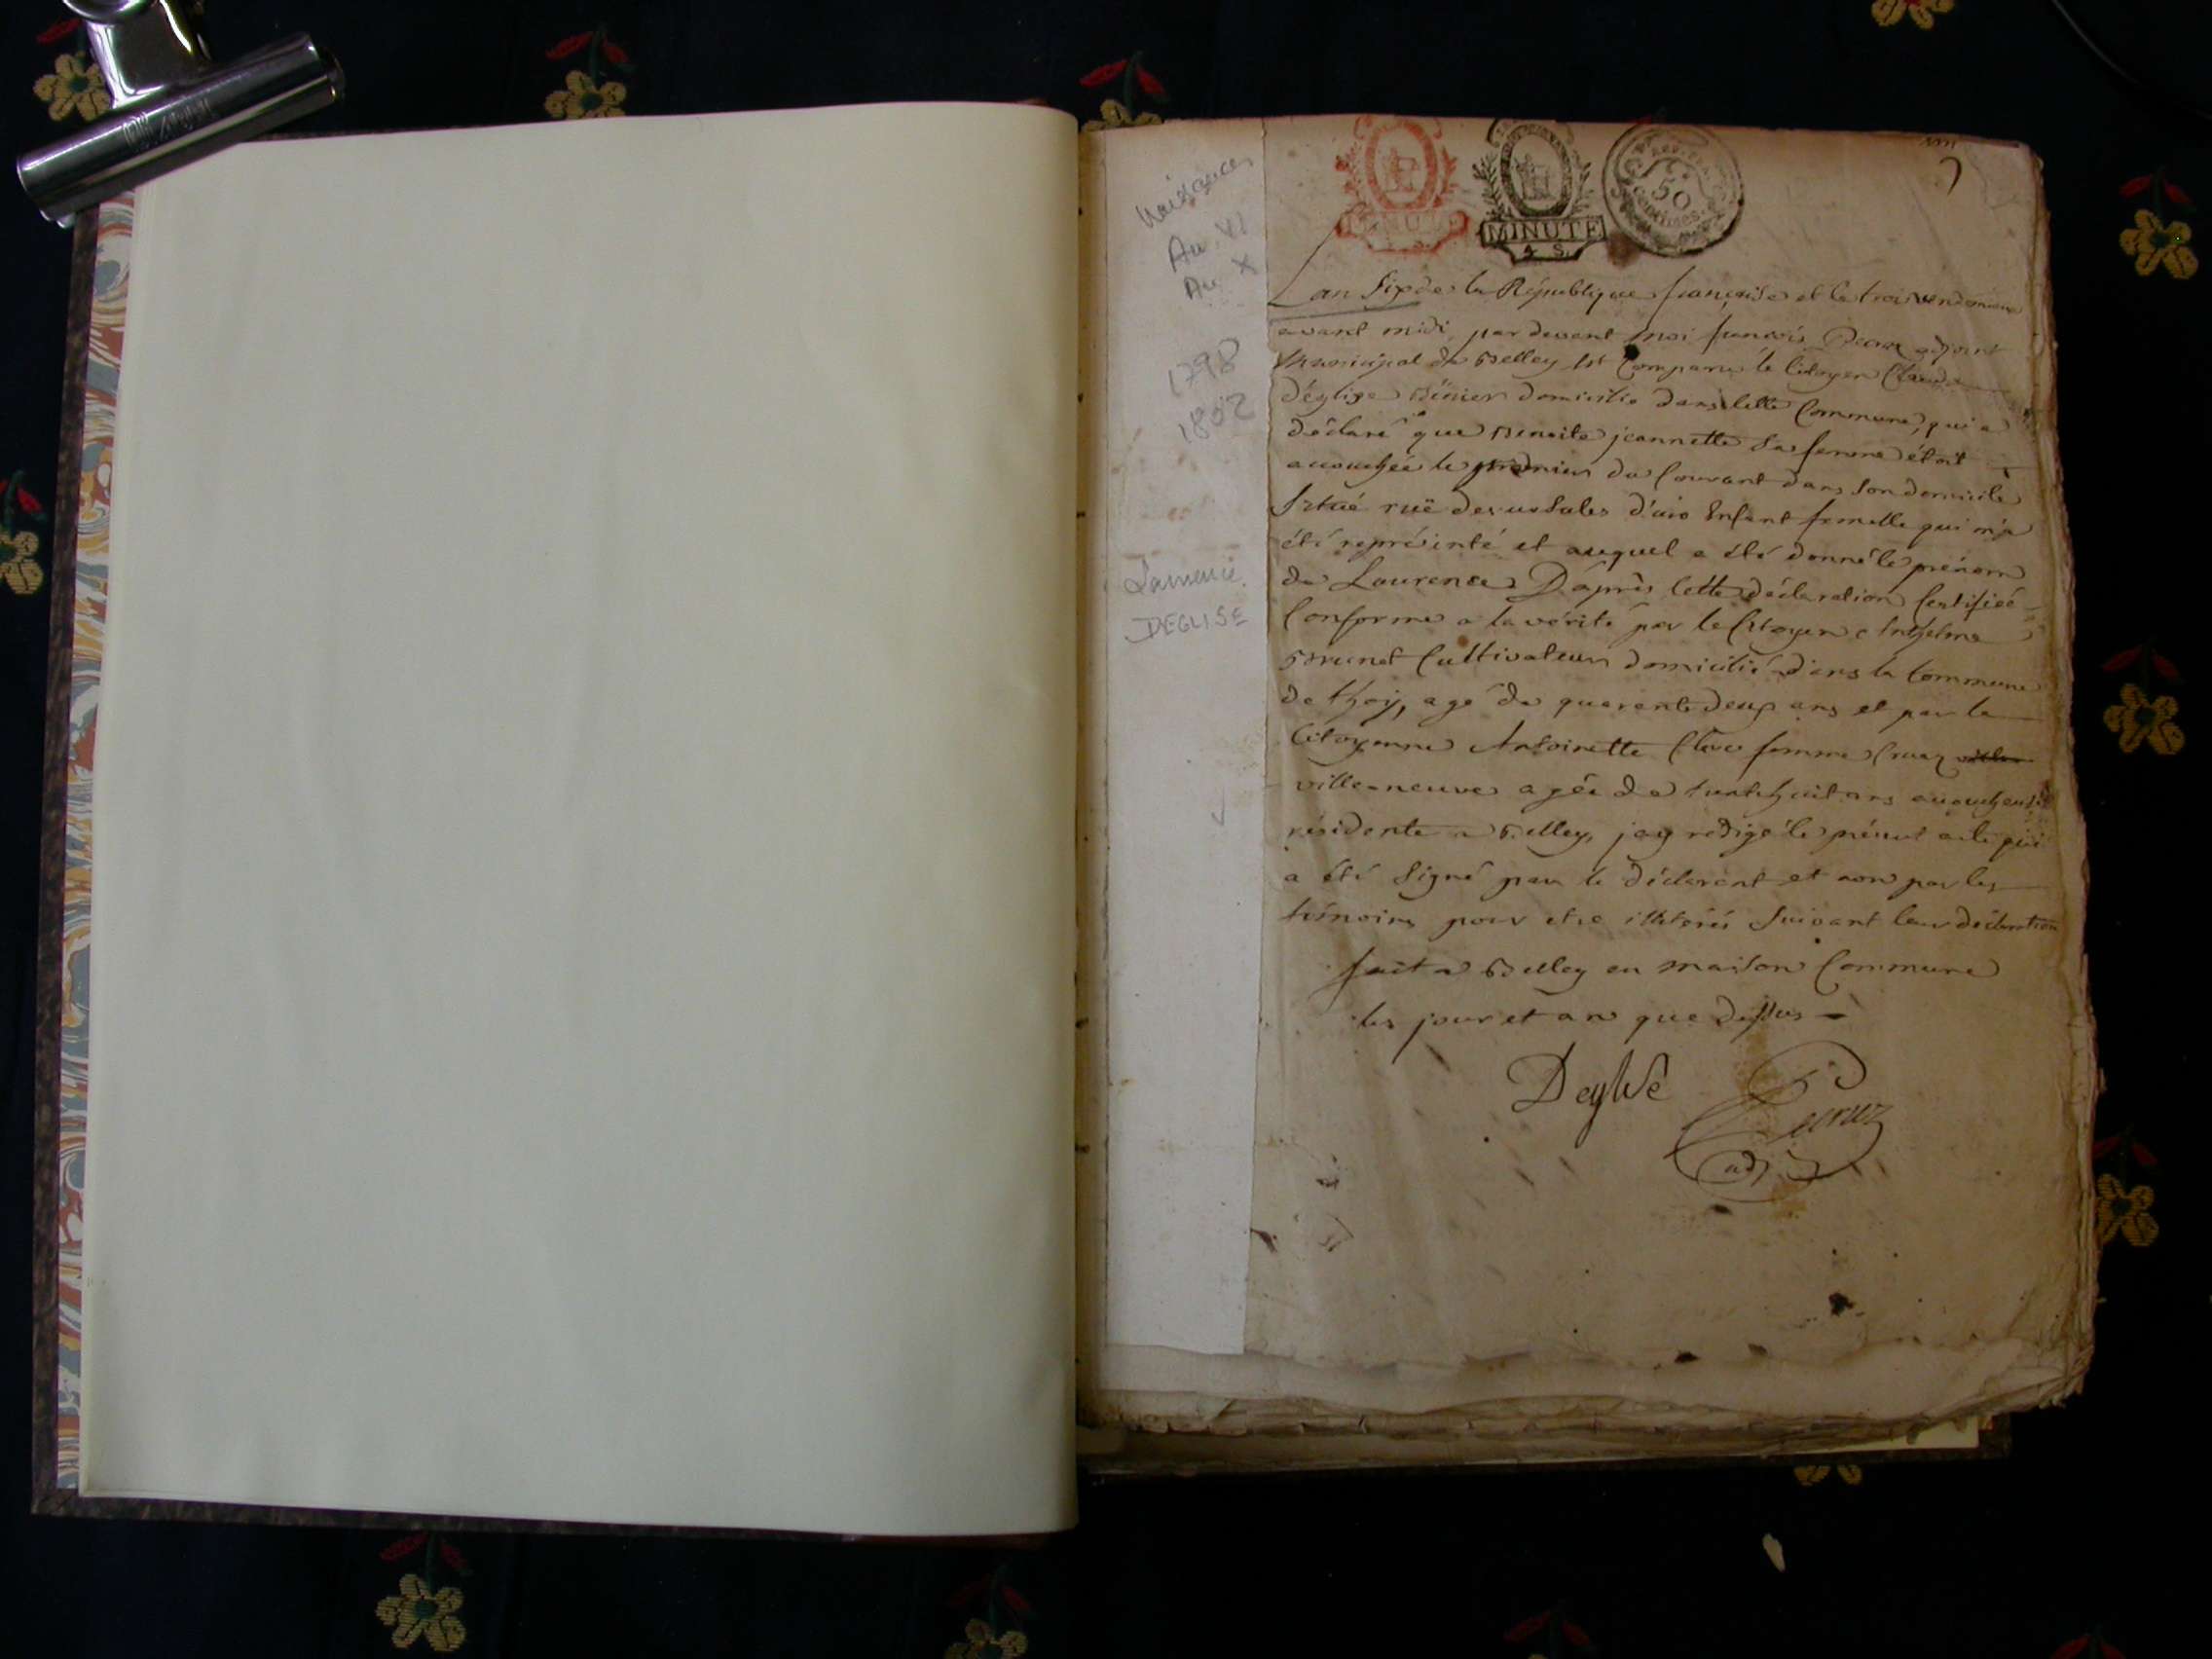 Naissances
An VI
An X
1798
1802
Laurence
DEGLISE
MINUTE
MINUTE
4 S.
50
centimes
L'an Six de la République française et le trois vendemiaire
avant midi par devant moi françois Decruz adjoint
Municipal de Belley est Comparu le Citoyen Claude
déglise domicilié dans cette Commune, qui a
déclaré que Benoite jeannette sa femme étoit
accouchée le premier du Courant dans son domicile
situé ruë des ursules d'un Enfant femelle qui m'a
été représenté et auquel a été donné le prénom
de Laurence D'après cette déclaration Certifiée
Conforme a la vérité par le Citoyen Anthelme
Brunet Cultivateur domicilié dans la Commune
de thoy, agé de quarente deux ans et par la
Citoyenne Antoinette femme Cruez
villeneuve agée de trente huit ans accoucheuse
résidente a Belley, jay redigé le présent acte qui
a été signé par le déclarant et non par les
témoins pour etre illiterés suivant leur déclaration
fait a Belley en maison Commune
les jour et an que dessus
Deglise
Decruz
adj